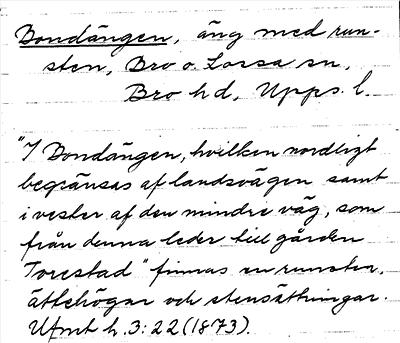 Bondängen, äng med run-
sten, Bro o. Lossa sn,
Bro hd, Upps. l.
"I Bondängen, hvilken nordligt
begränsas af landsvägen samt
i vester af den mindre väg, som
från denna leder till gården
Torestad" finnas en runsten,
ättehögar och stensättningar.
Ufmt h. 3: 22 (1873).